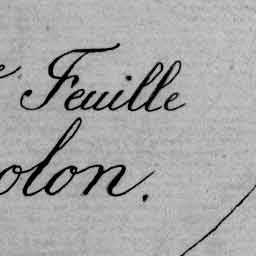 Feuille
olon.